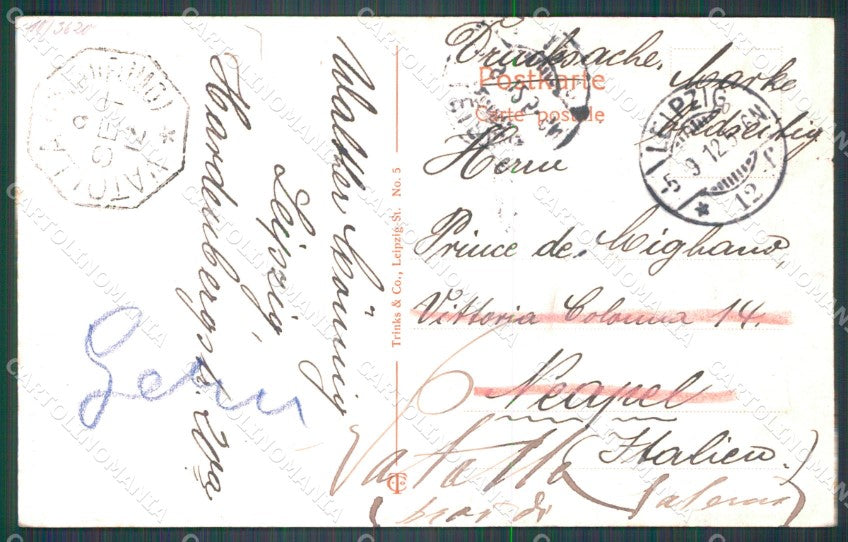 10/3620
Drucksache.
Marke
Postkarte
Carte postale
LEIPZIG
5
9 12 5
12
*
Herrn
Prince de Mighano,
Vittoria Colonna 14.
Neapel
(Italien.)
6
Vatolla
prov. di Salerno
Walther König
Leipzig,
Hardenbergstr.
Trinks & Co., Leipzig St. No. 5
VATOLLA
9 SET 12
CARTOLINOMANIA